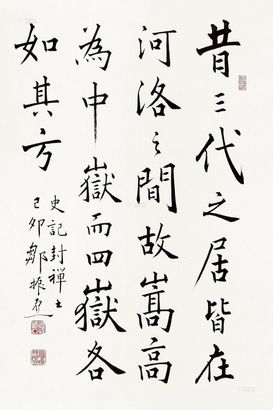 昔三代之居皆在
河洛之間故嵩高
為中嶽而四嶽各
如其方
史記封禅书
己卯鄒振亞